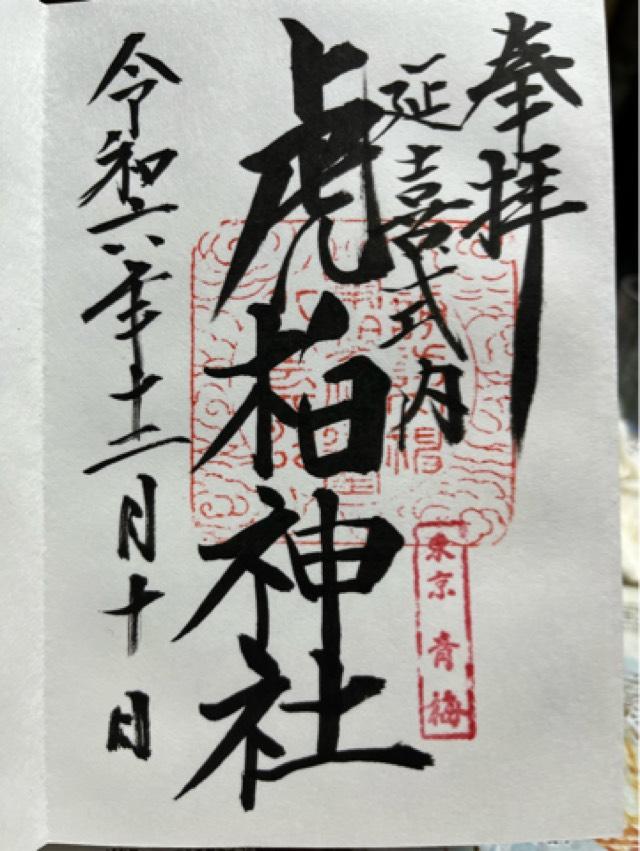 奉拝
延喜式内
虎柏神社
東京 青梅
令和六年十二月十日